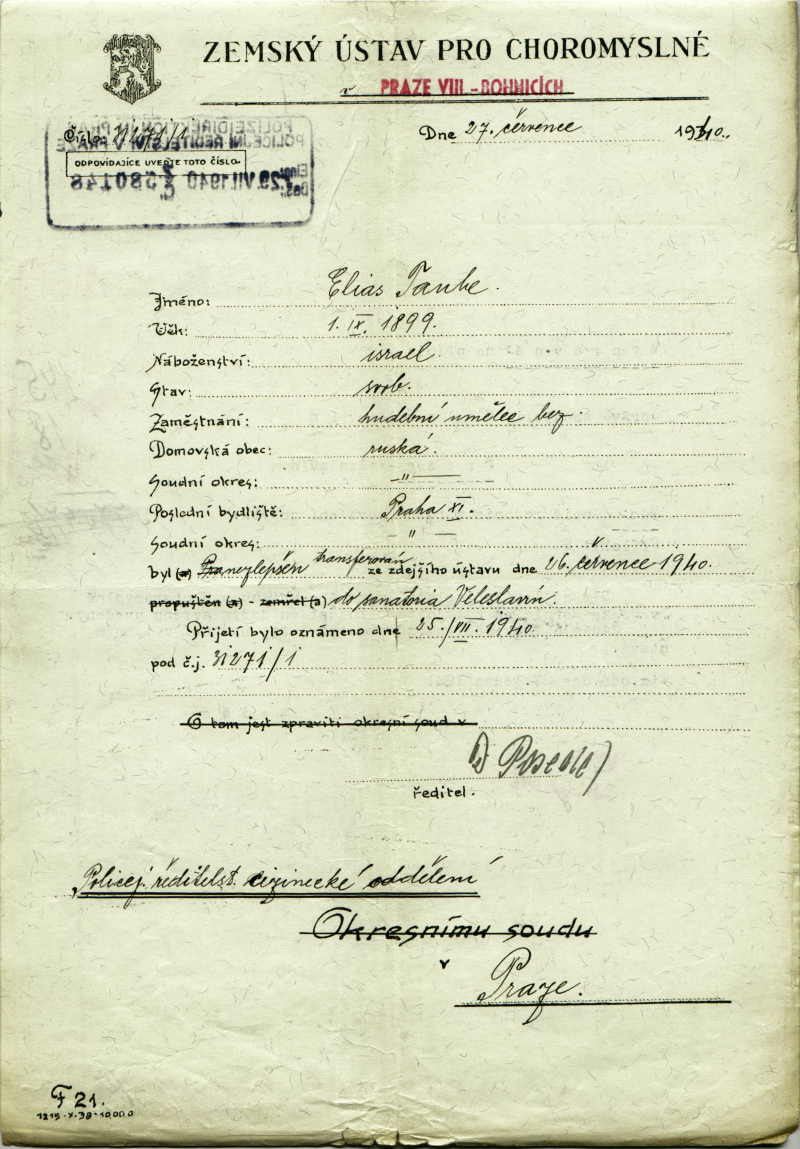 ZEMSKÝ ÚSTAV PRO CHOROMYSLNÉ
v PRAZE VIII.-BOHNICÍCH
Číslo: 31271/1
Dne 27. července 1940.
ODPOVÍDAJÍCE UVEĎTE TOTO ČÍSLO.
POLIZEIDIREKTION
POLICEJNÍ ŘEDITELSTVÍ
29.VII.1940 580148
Jméno: Elias Taube.
Věk: 1. IX. 1899.
Náboženství: israel.
Stav: svob.
Zaměstnání: hudební umělec bez.
Domovská obec: ruská.
Soudní okres: —"—
Poslední bydliště: Praha XI.
Soudní okres: —"—
byl (a) nezlepšen transferován ze zdejšího ústavu dne 26. července 1940.
propuštěn (a) - zemřel (a) do sanatoria Veleslavín.
Přijetí bylo oznámeno dne 25./VII. 1940.
pod č.j. 31271/1
O tom jest zpraviti okresní soud v
ředitel.
Policej. ředitelst. cizinecké oddělení
Okresnímu soudu
v
Praze.
F 21.
1215-X-38-10.000